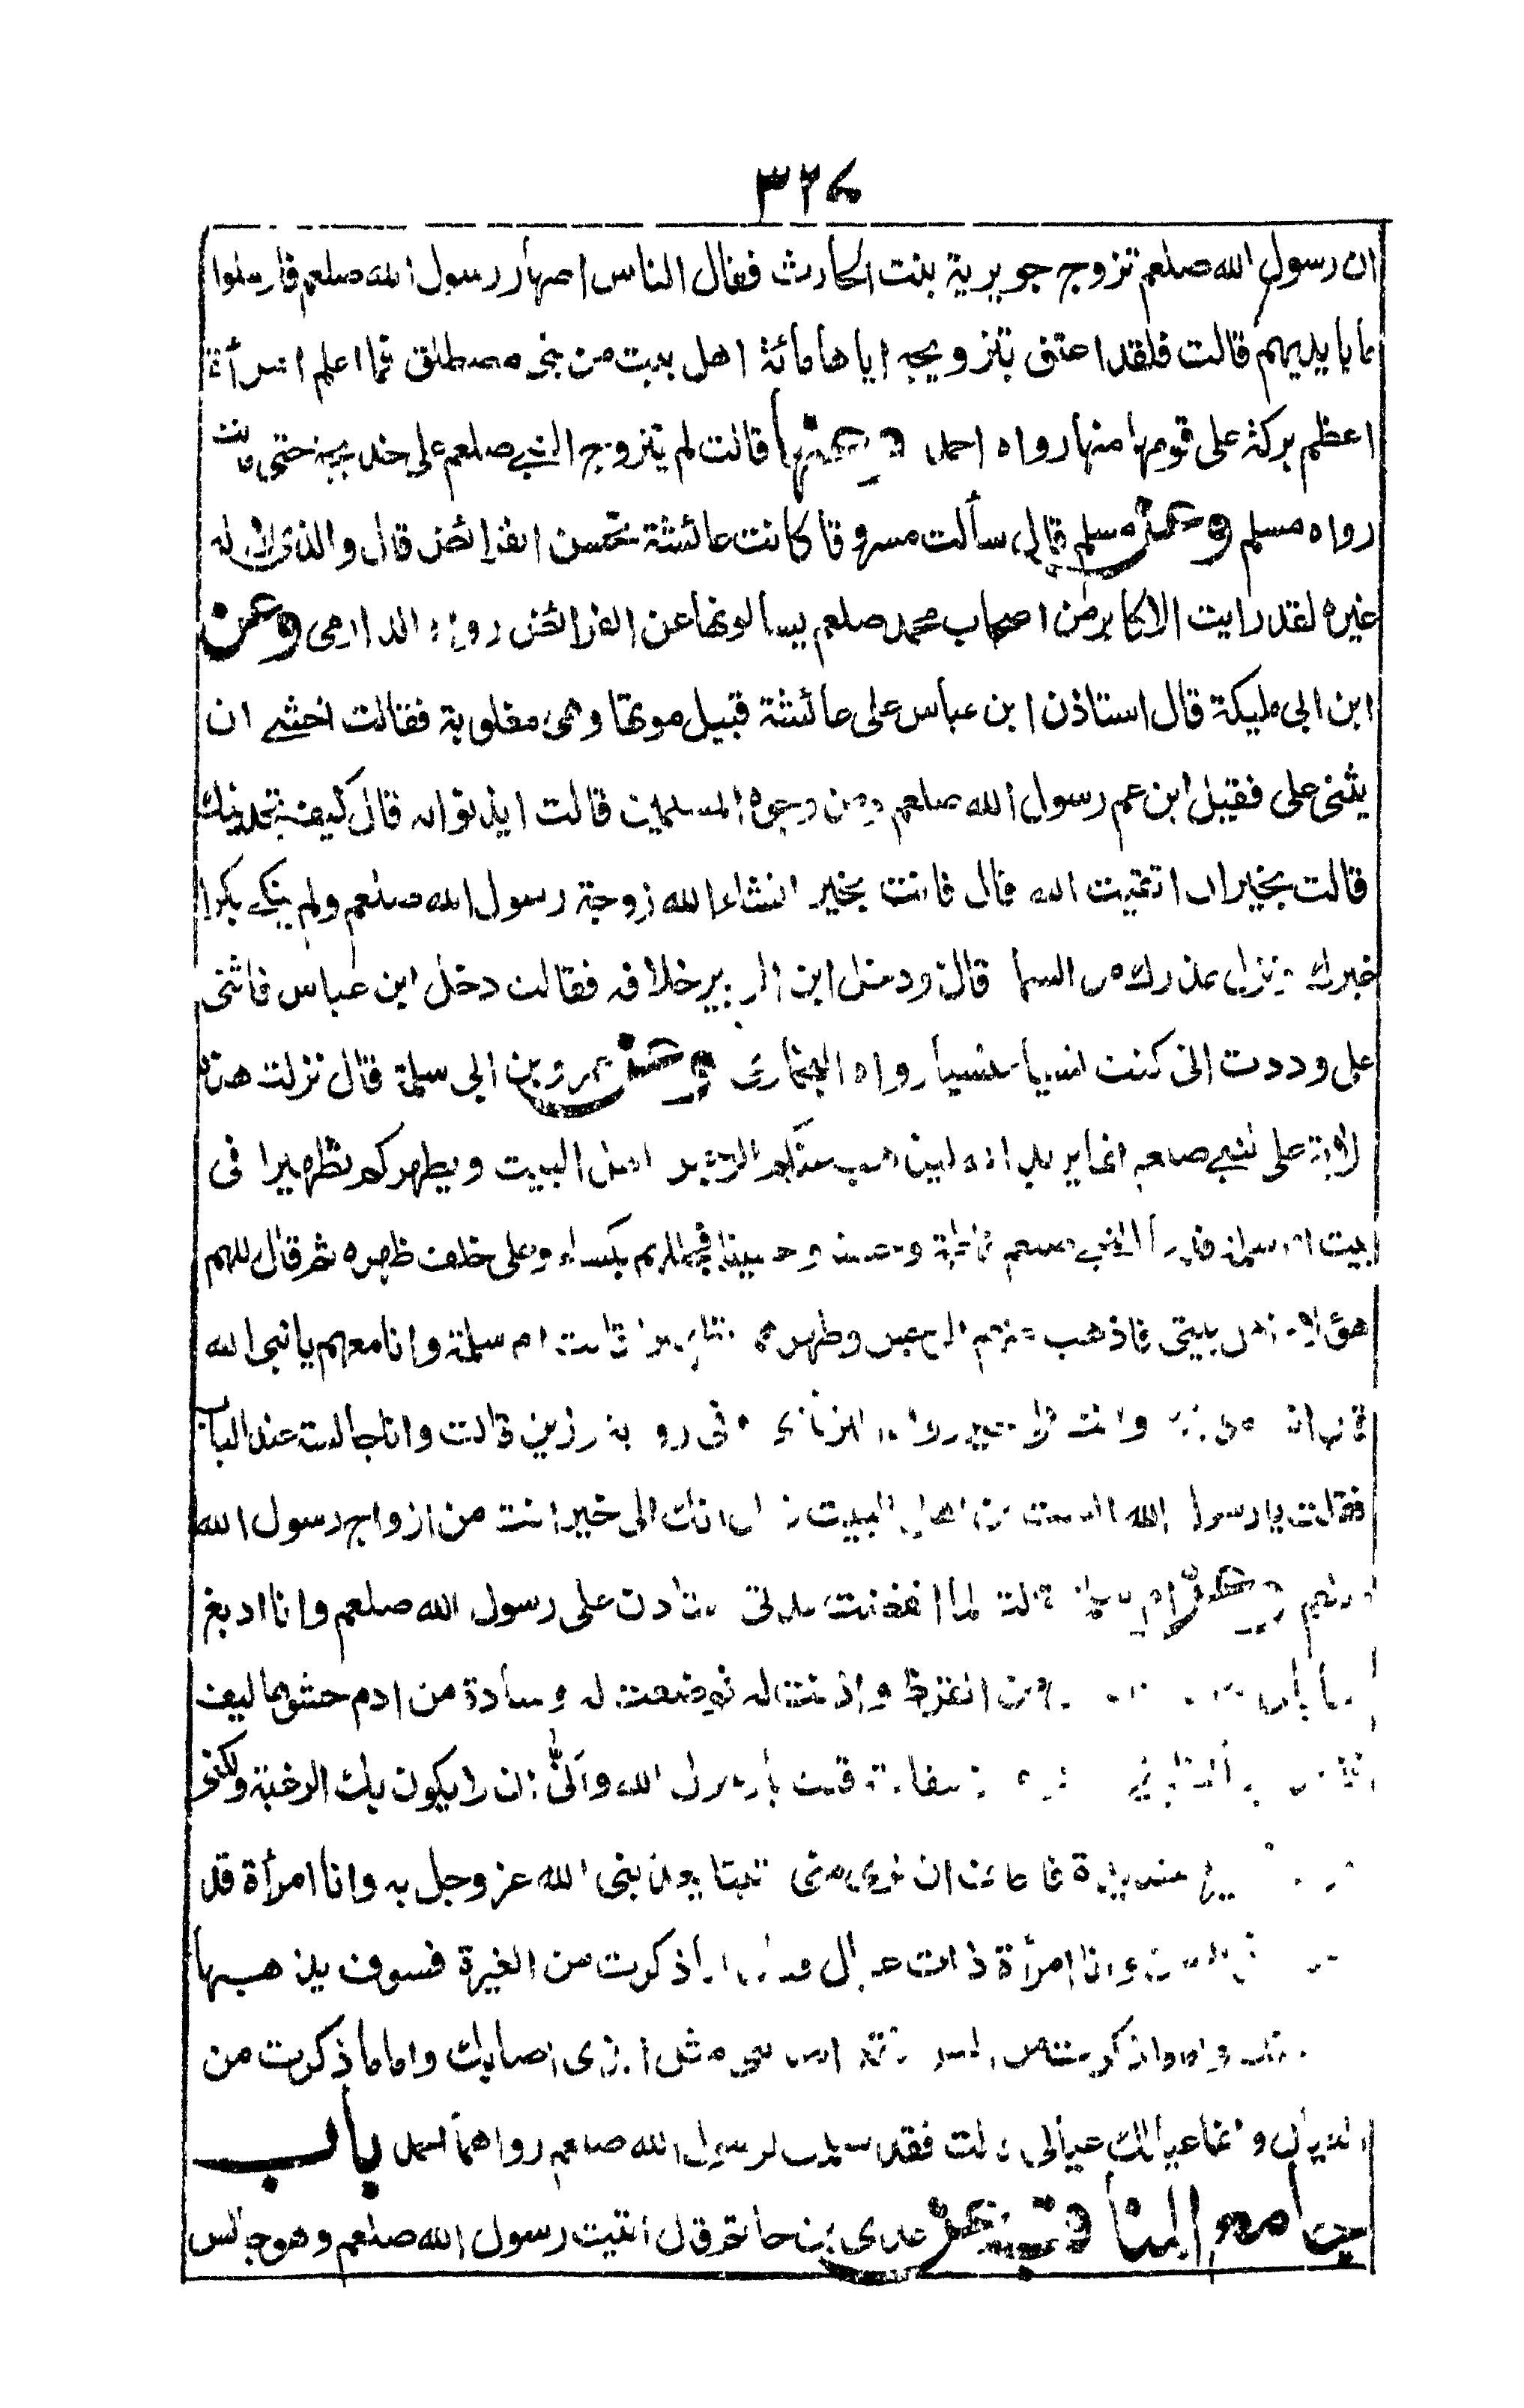 ٣٢٧
ان رسول الله صلعم تزوج جويرية بنت الحارث فقال الناس اصهار رسول الله صلعم فارسلوا
ما بايديهم قالت فلقد اعتق بتزويجه اياها مائة اهل بيت من بنى مصطلق فما اعلم امرأة
اعظم بركة على قومها منها رواه احمد وعنها قالت لم يتزوج النبي صلعم على خديجة حتى ماتت
رواه مسلم وعن مسلم قال سألت مسروقا كانت عائشة تحسن الفرائض قال والذى لا اله
غيره لقد رايت الاكابر من اصحاب محمد صلعم يسالونها عن الفرائض رواه الدارمى وعن
ابن ابى مليكة قال استاذن ابن عباس على عائشة قبيل موتها وهى مغلوبة فقالت اخشى ان
يثنى على فقيل ابن عم رسول الله صلعم ومن وجوه المسلمين قالت ايذنوا له قال كيف تجدينك
قالت بخير ان اتقيت الله قال فانت بخير انشاء الله زوجة رسول الله صلعم ولم ينكح بكرا
غيرك ونزل عذرك من السما قال ودخل ابن الزبير خلافه فقالت دخل ابن عباس فاثنى
على وددت انى كنت نسيا منسيا رواه البخارى وعن عمرو بن ابى سلمة قال نزلت هذه
الاية على النبي صلعم انما يريد الله ليذهب عنكم الرجس اهل البيت ويطهركم تطهيرا فى
بيت ام سلمة فدعا النبي صلعم فاطمة وحسنا وحسينا فجللهم بكساء وعلى خلف ظهره ثم قال اللهم
هؤلاء اهل بيتى فاذهب عنهم الرجس وطهرهم تطهيرا قالت ام سلمة وانا معهم يا نبى الله
قال انت على مكانك وانت الى خير رواه الترمذى وفى رواية رزين قالت وانا جالسة عند الباب
فقلت يا رسول الله الست من اهل البيت فقال انك الى خير انت من ازواج رسول الله
صلعم وعن ام سلمة قالت لما انقضت عدتى استاذن على رسول الله صلعم وانا ادبغ
من القرظ واذنت له فوضعت له وسادة من ادم حشوها ليف
قلت يا رسول الله وانى ان لا يكون بك الرغبة ولكنى
شديدة فاخاف ان ترى منى شيئا يعذبنى الله عز وجل به وانا امرأة قد
وانا امرأة ذات عيال فقال اما ذكرت من الغيرة فسوف يذهبها
واما ما ذكرت من السن فقد اصابنى مثل الذى اصابك واما ما ذكرت من
العيال وانما عيالك عيالى قالت فقد سلمت لرسول الله صلعم رواهما احمد باب
جامع المناقب عن عدى بن حاتم قال اتيت رسول الله صلعم وهو جالس